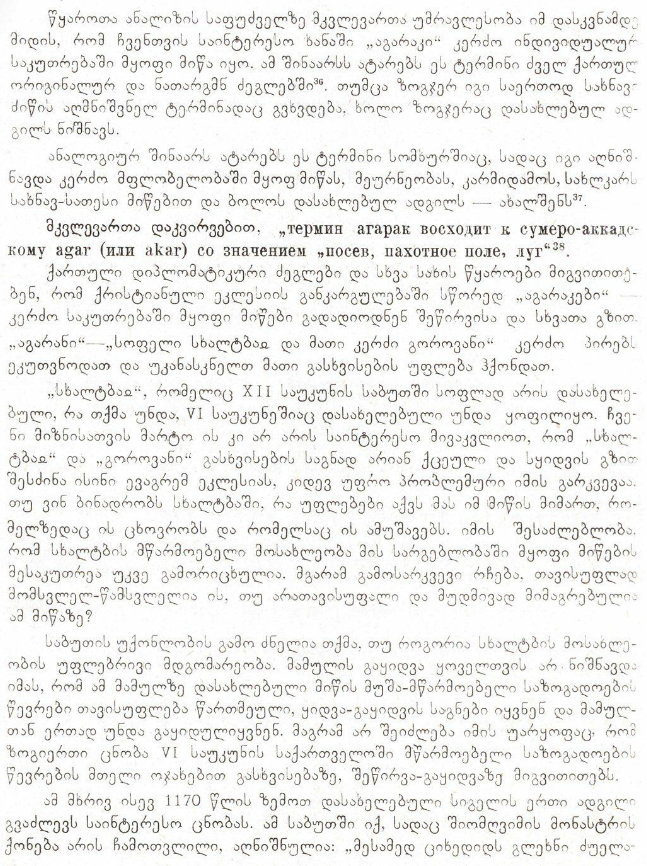 წყაროთა ანალიზის საფუძველზე მკვლევართა უმრავლესობა იმ დასკვნამდე
მიდის, რომ ჩვენთვის საინტერესო ხანაში „აგარაკი“ კერძო ინდივიდუალურ
საკუთრებაში მყოფი მიწა იყო. ამ შინაარსს ატარებს ეს ტერმინი ძველ ქართულ
ორიგინალურ და ნათარგმნ ძეგლებში³⁶. თუმცა ზოგჯერ იგი საერთოდ სახნავ-
ძიწის აღმნიშვნელ ტერმინადაც გვხვდება, ხოლო ზოგჯერაც დასახლებულ ად-
გილს ნიშნავს.
ანალოგიურ შინაარს ატარებს ეს ტერმინი სომხურშიაც, სადაც იგი აღნიშ-
ნავდა კერძო მფლობელობაში მყოფ მიწას, მეურნეობას, კარმიდამოს, სახლკარს
სახნავ-სათესი მიწებით და ბოლოს დასახლებულ ადგილს — ახალშენს³⁷.
მკვლევართა დაკვირვებით, „термин агарак восходит к сумеро-аккадс-
кому agar (или akar) со значением „посев, пахотное поле, луг“³⁸.
ქართული დიპლომატიკური ძეგლები და სხვა სახის წყაროები მიგვითითე-
ბენ, რომ ქრისტიანული ეკლესიის განკარგულებაში სწორედ „აგარაკები“ —
კერძო საკუთრებაში მყოფი მიწები გადადიოდნენ შეწირვისა და სხვათა გზით.
„აგარანი“—„სოფელი სხალტბაჲ და მათი კერძი გოროვანი“ კერძო პირებს
ეკუთვნოდათ და უკანასკნელთ მათი გასხვისების უფლება ჰქონდათ.
„სხალტბაჲ“, რომელიც XII საუკუნის საბუთში სოფლად არის დასახელე-
ბული, რა თქმა უნდა, VI საუკუნეშიაც დასახელებული უნდა ყოფილიყო. ჩვე-
ნი მიზნისათვის მარტო ის კი არ არის საინტერესო მივაკვლიოთ, რომ „სხალ-
ტბაჲ“ და „გოროვანი“ გასხვისების საგნად არიან ქცეული და სყიდვის გზით
შესძინა ისინი ევაგრემ ეკლესიას, კიდევ უფრო პრობლემური იმის გარკვევაა.
თუ ვინ ბინადრობს სხალტბაში, რა უფლებები აქვს მას იმ მიწის მიმართ, რო-
მელზედაც ის ცხოვრობს და რომელსაც ის ამუშავებს. იმის შესაძლებლობა.
რომ სხალტბის მწარმოებელი მოსახლეობა მის სარგებლობაში მყოფი მიწების
მესაკუთრეა უკვე გამორიცხულია. მგარამ გამოსარკვევი რჩება, თავისუფლად
მომსვლელ-წამსვლელია ის, თუ არათავისუფალი და მუდმივად მიმაგრებულია
ამ მიწაზე?
საბუთის უქონლობის გამო ძნელია თქმა, თუ როგორია სხალტბის მოსახლე-
ობის უფლებრივი მდგომარეობა. მამულის გაყიდვა ყოველთვის არ ნიშნავდა
იმას, რომ ამ მამულზე დასახლებული მიწის მუშა-მწარმოებელი საზოგადოების
წევრები თავისუფლება წართმეული, ყიდვა-გაყიდვის საგნები იყვნენ და მამულ-
თან ერთად უნდა გაყიდულიყვნენ. მაგრამ არ შეიძლება იმის უარყოფაც, რომ
ზოგიერთი ცნობა VI საუკუნის საქართველოში მწარმოებელი საზოგადოების
წევრების მთელი ოჯახებით გასხვისებაზე, შეწირვა-გაყიდვაზე მიგვითითებს.
ამ მხრივ ისევ 1170 წლის ზემოთ დასახელებული სიგელის ერთი ადგილი
გვაძლევს საინტერესო ცნობას. ამ საბუთში იქ, სადაც შიომღვიმის მონასტრის
ქონება არის ჩამოთვლილი, აღნიშნულია: „მესამედ ციხედიდს გლეხნი ძუელა-